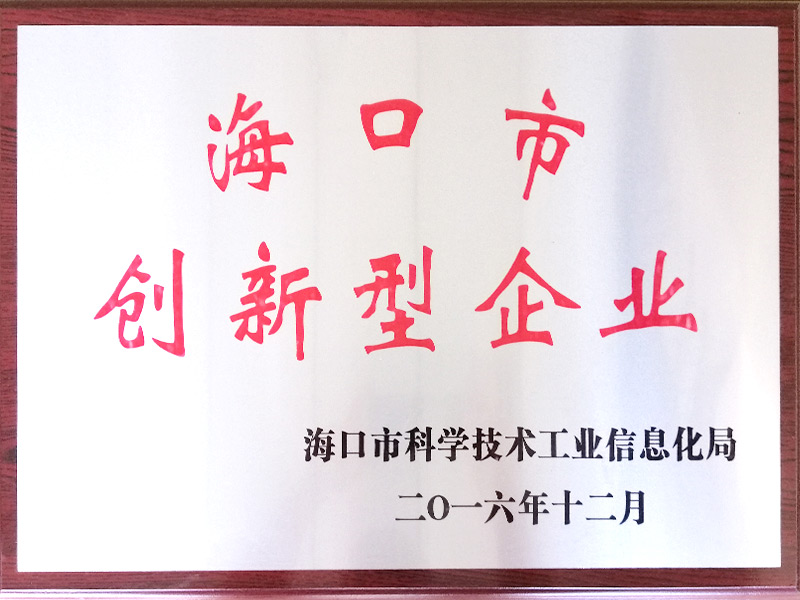 海口市
创新型企业
海口市科学技术工业信息化局
二O一六年十二月